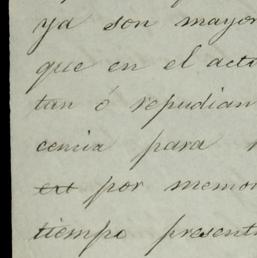 ya son mayor
que en el acto
tan ó repudian
cencia para
por memor
tiempo present